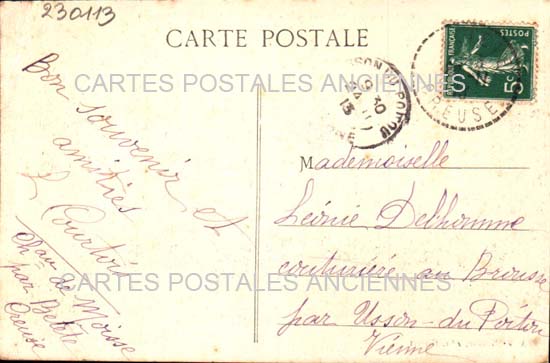 230113
CARTE POSTALE
CARTES POSTALES ANCIENNES
Bon souvenir et
amitiés
Courtois
Chau de Moisse
par Betête
Creuse
POSTES
5c
REUSE
USSON DU POITOU
9 30
13
Mademoiselle
Léonie Delhomme
couturière au Brousse
par Usson-du-Poitou
Vienne
CARTES POSTALES ANCIENNES